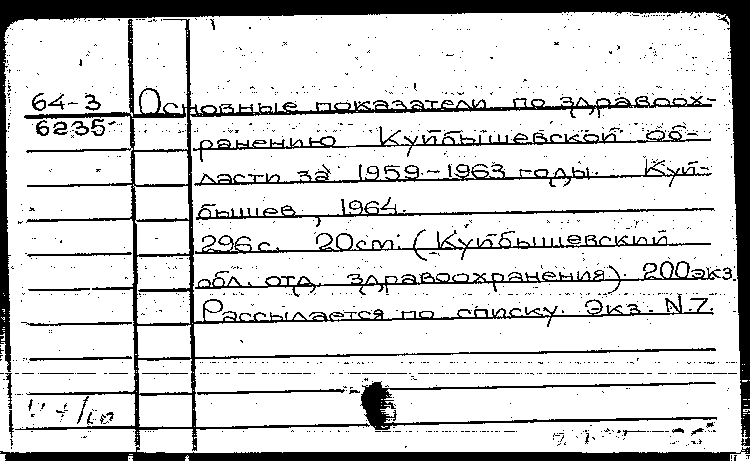 64-3
6235
Основные показатели по здравоох-
ранению Куйбышевской об-
ласти за 1959-1963 годы. Куй-
бышев, 1964.
296с. 20см. (Куйбышевский
обл. отд. здравоохранения). 200экз.
Рассылается по списку. Экз. N.7.